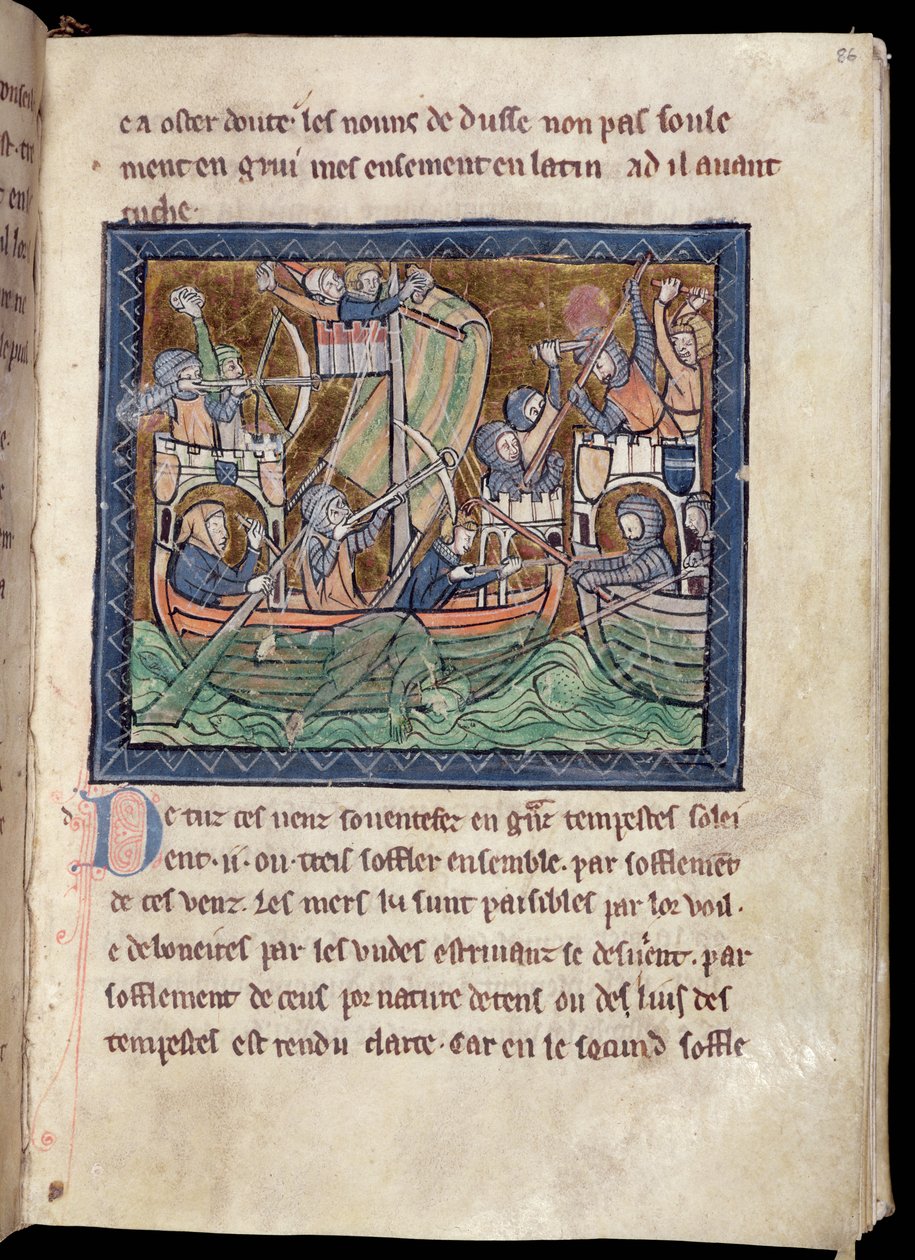 86
e a oster doute· les nouns de dusse non pas soule
ment en griu mes ensement en latin ad il auant
tuche·
d
De tuz ces uenz souentefez en gͣnz tempestes solei
ent·ii·ou·treis soffler ensemble·par sofflemēt
de ces venz. Les mers ki sunt paisibles par lor voil·
e deboneites par les vndes estriuanz se
sofflement de ceus por nature de tens ou des luis des
tempestes est rendu clarte·Car en le secund soffle